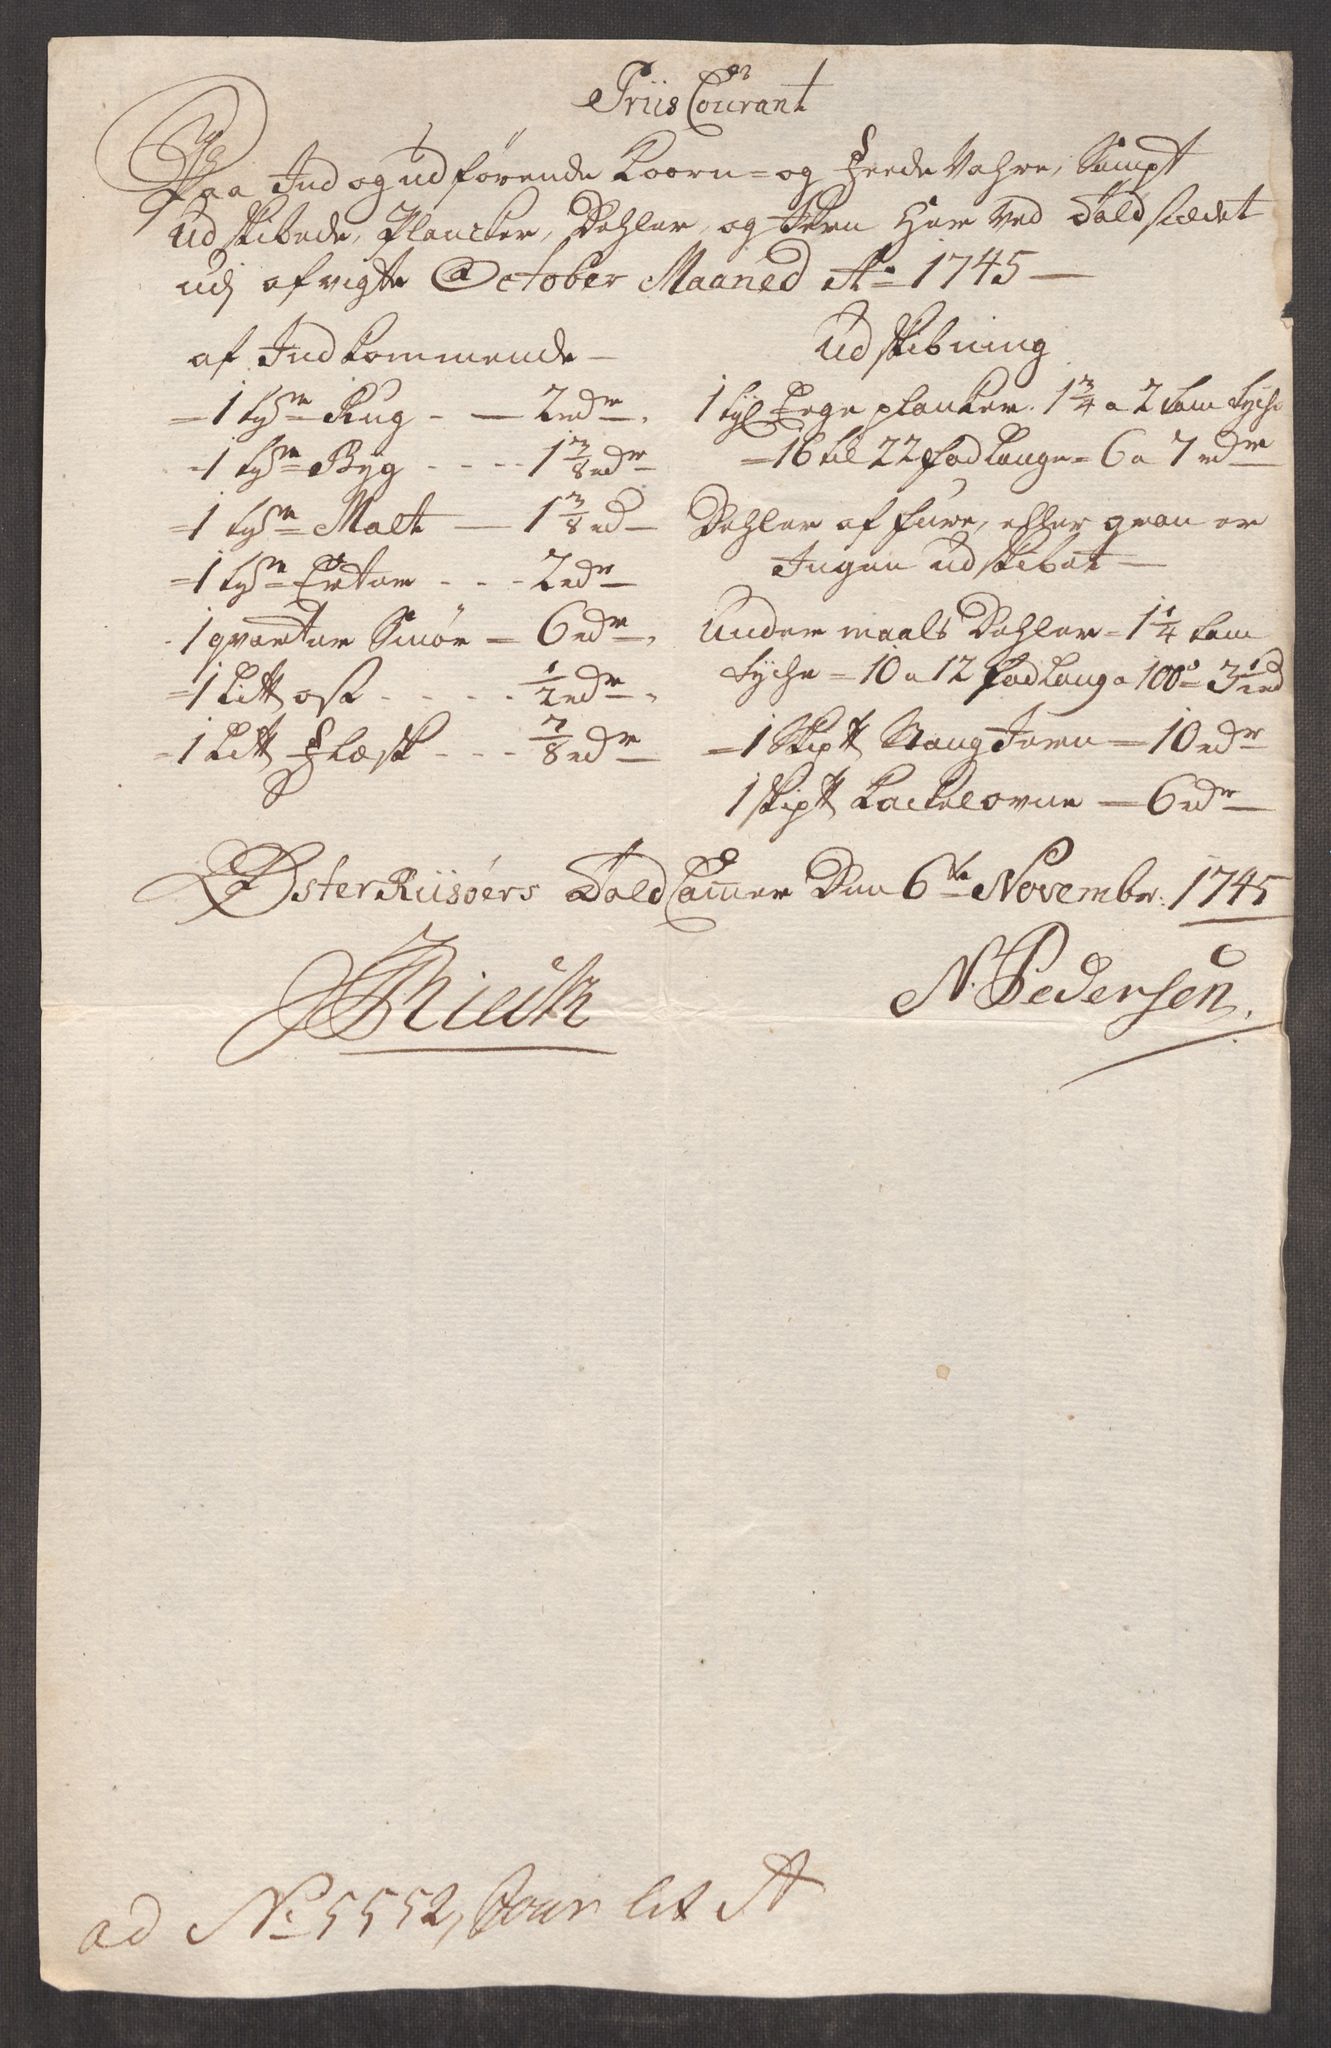 Priis Courant
Paa Ind og udførende Koorn= og Feede Vahre, Sampt
Udskibede, Plancker, Dehler, og Jern Her Ved Toldstædet
udj afvigte October Maaned Ao 1745
af Indkommende
=1 tønr Rug - — 2 rdr
-1 tønr Byg - - - - 1 3/8 rdr
=1 tønr Malt — 1 3/8 rd
=1 tønr Erter - - - 2 rdr
-1 qvarter Smør = 6 rdr
=1 Litt ost - - - - - 1/2 rdr
=1 Litt Flæsk - - - 7/8 rdr
Udskibning
1 tyl Eege planker 1 3/4 a 2 tom tyche
=16 til 22 fod Lange = 6 a 7 rdr
Dehler af fure, eller gran er
Ingen udskibet
Under maals Dehler = 1 1/4 tom
tyche = 10 a 12 fod Lang a 100 = 3 1/2 rd
=1 Skiptt Stang Jern = 10 rdr
1 Skiptt Kackelovne — 6 rdr
Øster Riisøers Told Cammer Den 6te Novembr. 1745
N. Pedersen
ad No 5552, Jour lit A